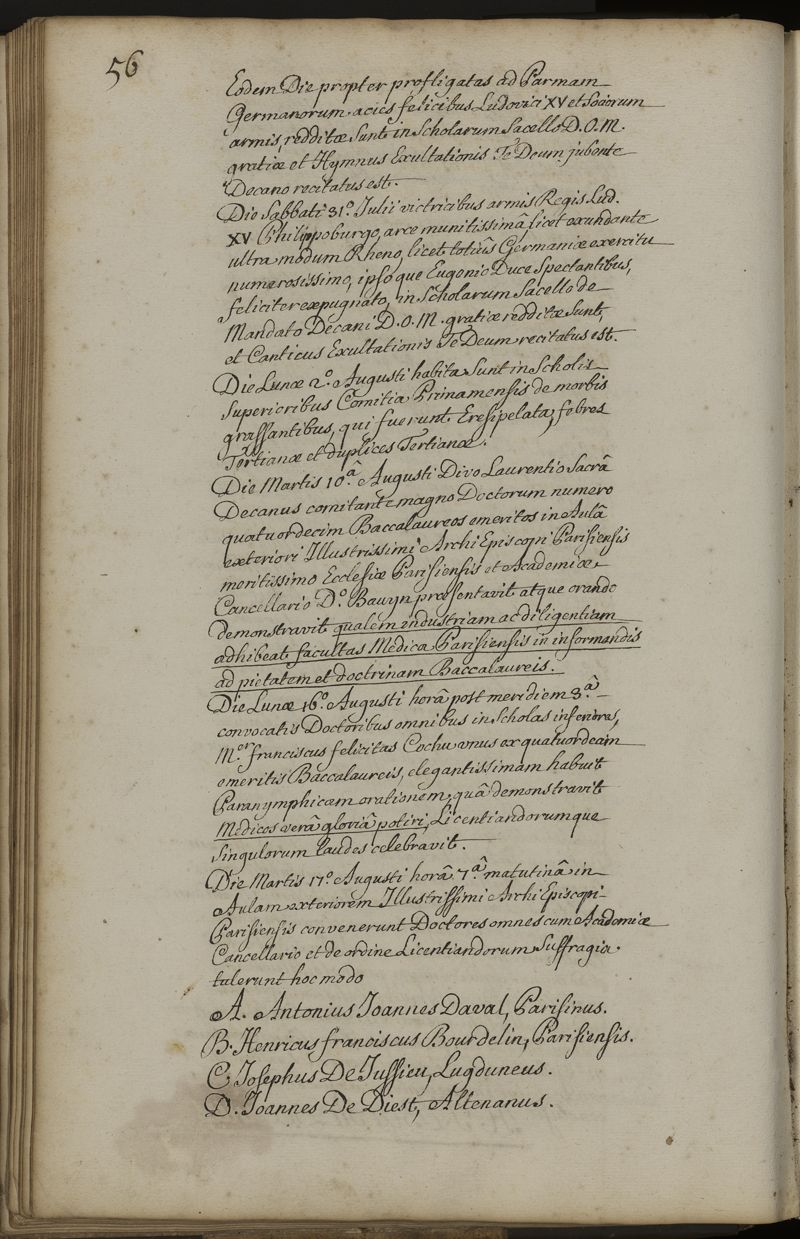 56
Eodem Die propter profligatas ad Parmam
Germanorum acies felicibus Ludovici XV et Sociorum
armis, redditæ Sunt in Scholarum Sacello D.O.M.
gratiæ et Hymnus Exultationis Te Deum jubente
Decano recitatus est.
Die Sabbati 31º Julii victricibus armis Regis Lud.
XV Philippoburgo, arce munitissimâ, licet exundante
ultra modum Rheno, licet totius Germaniæ exercitu
numerosissimo, ipso que Eugenio Duce Spectantibus,
feliciter expugnato, in Scholarum Sacello de
Mandato Decani D.O.M. gratiæ redditæ Sunt,
et Canticus Exultationis Te Deum recitatus est.
Die Lunæ 2º Augusti habita Sunt in Scholis
Superioribus Comitia Primamensis de morbis
grassantibus, qui fuerunt Eresipelata, febres
Tertianæ et duplices Tertianæ.
Die Martis 10.â Augusti Divo Laurentio Sacrâ
Decanus comitante magno Doctorum numero
quatuordecim Baccalaureos emeritos in Aulâ
exteriori Illustrissimi Archi Episcopi Parisiensis
meritissimo Ecclesiæ Parisiensis et Academiæ
Cancellario Dº. Bauyn præsentavit atque orando
demonstravit qualem industriam ac diligentiam
adhibeat facultas Medica Parisiensis in informandis
ad pietatem et doctrinam Baccalaureis.
Die Lunæ 16º Augusti horâ post meridiem 3.â
convocatis Doctoribus omnibus in Scholas inferiores,
M.er franciscus felicitas Cochu unus ex quatuordecim
emeritis Baccalaureis, elegantissimam habuit
Paranymphicam orationem, quâ demonstravit
Medicos verâ gloriâ potiri, Licentiandorumque
Singulorum laudes celebravit.
Die Martis 17º Augusti horâ 7.â matutinâ in
Aulam exteriorem Illustrissimi Archi Episcopi
Parisiensis convenerunt Doctores omnes cum Academiæ
Cancellario et de ordine Licentiandorum Suffragia
tulerunt hoc modo
A. Antonius Joannes Daval, Parisinus.
B. Henricus franciscus Bourdelin, Parisiensis.
C. Josephus De Jussieu, Lugduneus.
D. Joannes De Diest, Altenanus.